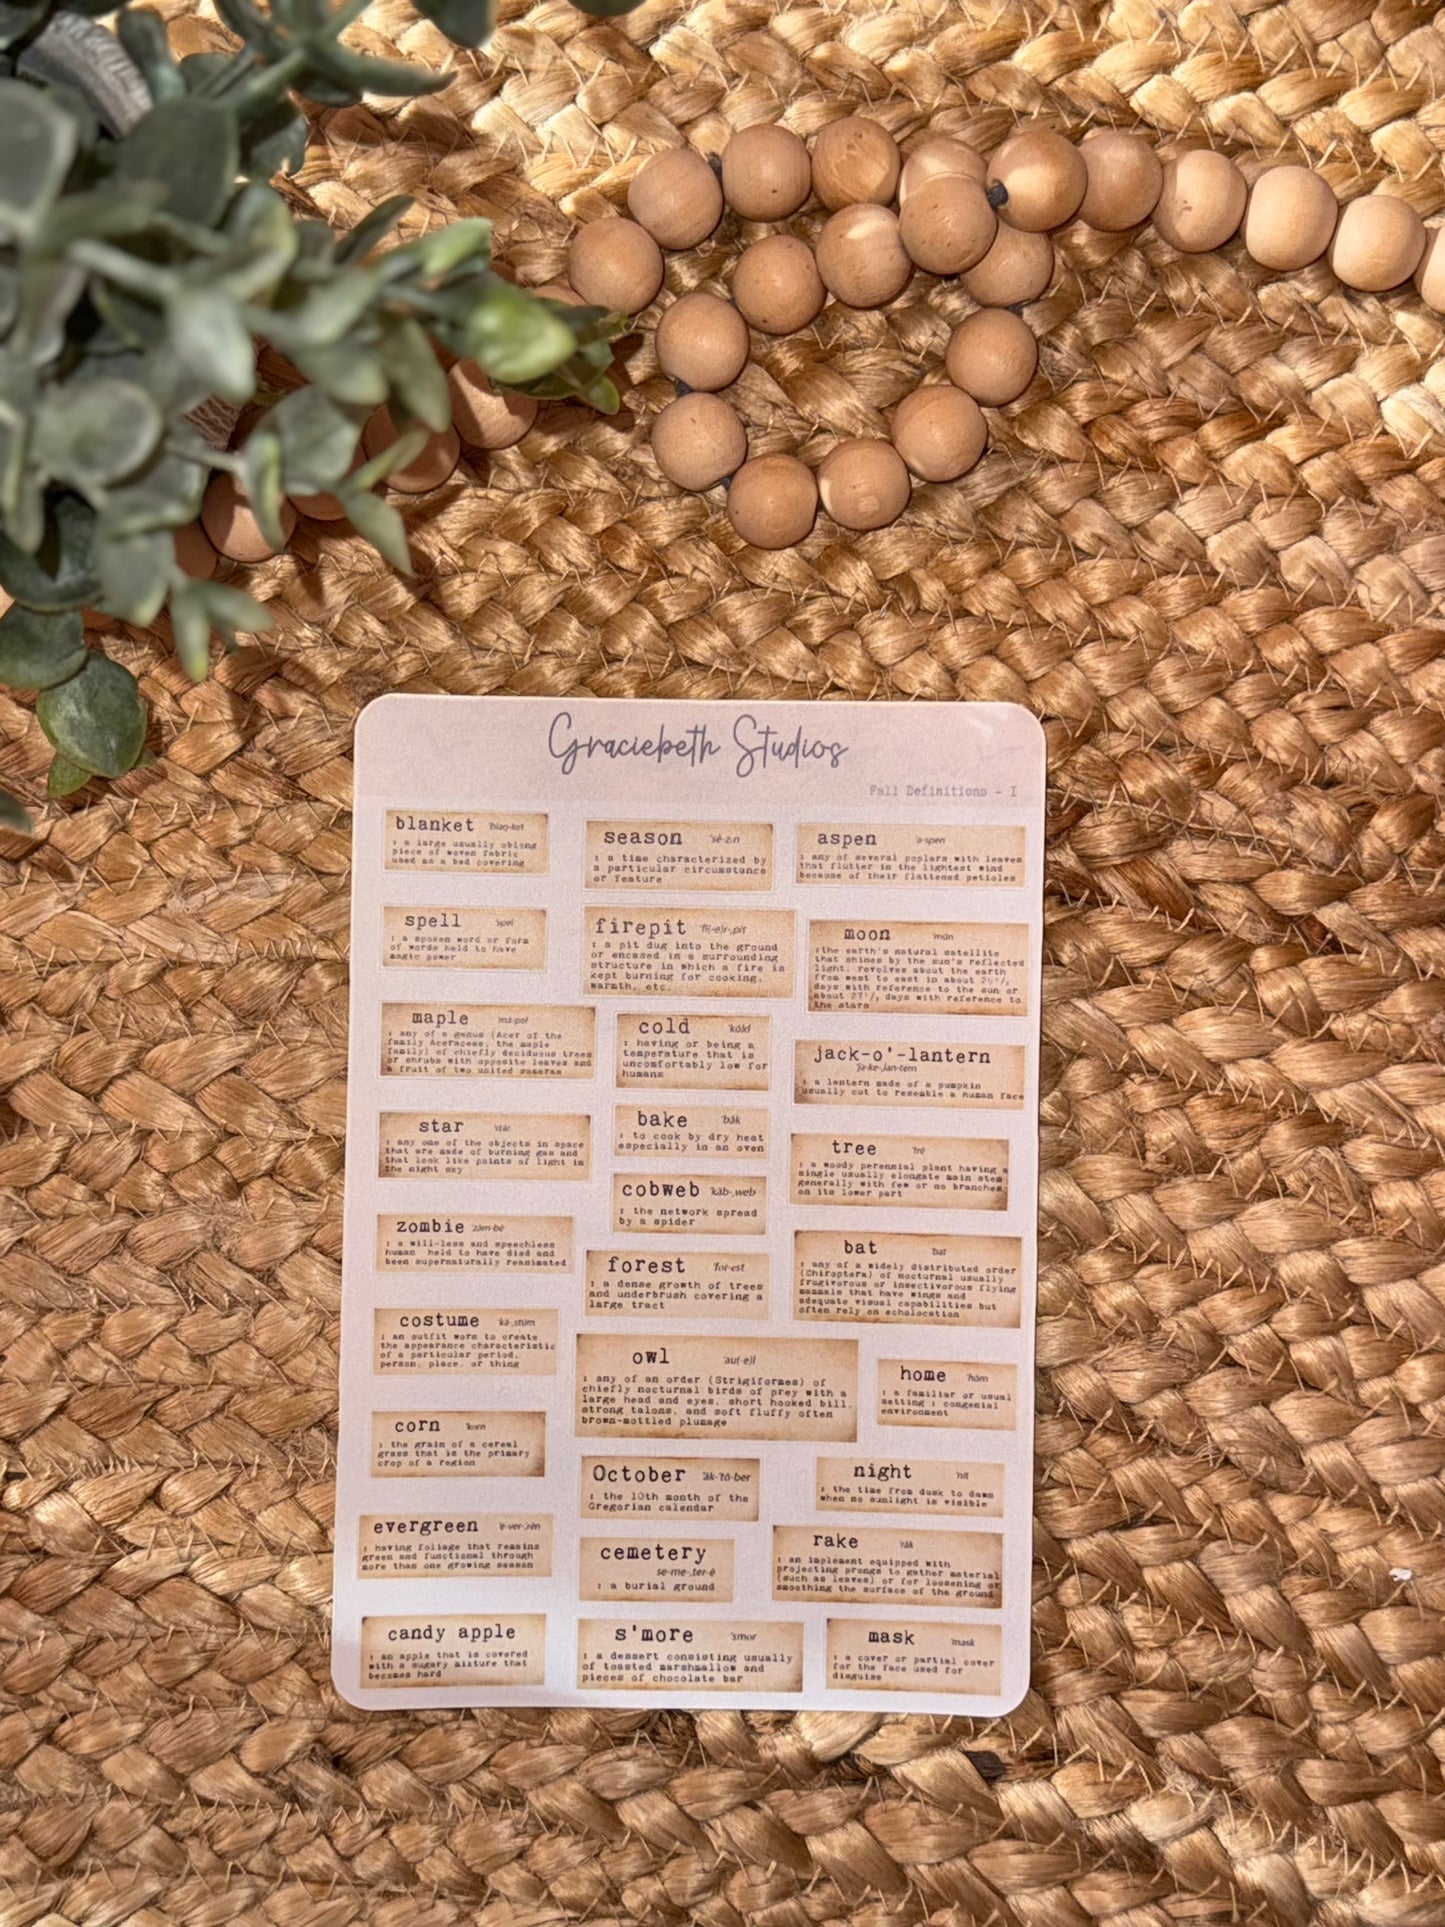 Graciebeth Studios
Fall Definitions - I
blanket 'blaŋ-ket
: a large usually oblong
piece of woven fabric
used as a bed covering
spell 'spel
: a spoken word or form
of words held to have
magic power
maple 'mā-pel
: any of a genus (Acer of the
family Aceraceae, the maple
family) of chiefly deciduous trees
or shrubs with opposite leaves and
a fruit of two united samaras
star 'stär
: any one of the objects in space
that are made of burning gas and
that look like points of light in
the night sky
zombie 'zäm-bē
: a will-less and speechless
human held to have died and
been supernaturally reanimated
costume 'kä-,stüm
: an outfit worn to create
the appearance characteristic
of a particular period,
person, place, or thing
corn 'korn
: the grain of a cereal
grass that is the primary
crop of a region
evergreen 'e-ver-,rēn
: having foliage that remains
green and functional through
more than one growing season
candy apple
: an apple that is covered
with a sugary mixture that
becomes hard
season 'sē-z:n
: a time characterized by
a particular circumstance
or feature
firepit 'fī(-e)r-,pit
: a pit dug into the ground
or encased in a surrounding
structure in which a fire is
kept burning for cooking,
warmth, etc.
cold 'kōld
: having or being a
temperature that is
uncomfortably low for
humans
bake 'bāk
: to cook by dry heat
especially in an oven
cobweb 'käb-,web
: the network spread
by a spider
forest 'for-est
: a dense growth of trees
and underbrush covering a
large tract
owl 'au(-e)l
: any of an order (Strigiformes) of
chiefly nocturnal birds of prey with a
large head and eyes, short hooked bill,
strong talons, and soft fluffy often
brown-mottled plumage
October äk-'tō-ber
: the 10th month of the
Gregorian calendar
cemetery
'se-me-,ter-ē
: a burial ground
s'more 'smor
: a dessert consisting usually
of toasted marshmallow and
pieces of chocolate bar
aspen 'a-spen
: any of several poplars with leaves
that flutter in the lightest wind
because of their flattened petioles
moon 'mün
:the earth's natural satellite
that shines by the sun's reflected
light, revolves about the earth
from west to east in about 29¹/₂
days with reference to the sun or
about 27¹/₃ days with reference to
the stars
jack-o'-lantern
'ja-ke-,lan-tern
: a lantern made of a pumpkin
usually cut to resemble a human face
tree 'trē
: a woody perennial plant having a
single usually elongate main stem
generally with few or no branches
on its lower part
bat 'bat
: any of a widely distributed order
(Chiroptera) of nocturnal usually
frugivorous or insectivorous flying
mammals that have wings and
adequate visual capabilities but
often rely on echolocation
home 'hōm
: a familiar or usual
setting : congenial
environment
night 'nīt
: the time from dusk to dawn
when no sunlight is visible
rake 'rāk
: an implement equipped with
projecting prongs to gather material
(such as leaves) or for loosening or
smoothing the surface of the ground
mask 'mask
: a cover or partial cover
for the face used for
disguise